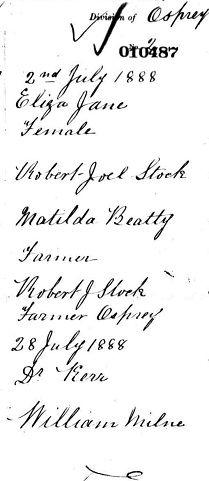 Division of Osprey
010487
2nd July 1888
Eliza Jane
Female
Robert Joel Stock
Matilda Beatty
Farmer
Robert J Stock
Farmer Osprey
28 July 1888
Dr Kerr
William Milne